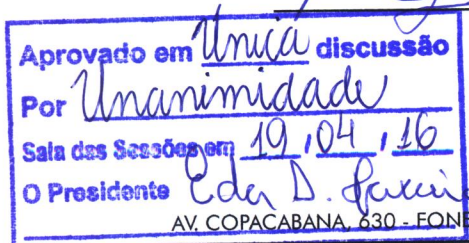 Aprovado em Única discussão
Por Unanimidade
Sala das Sessões em 19 / 04 / 16
O Presidente Eder D.
AV. COPACABANA, 630 - FONE